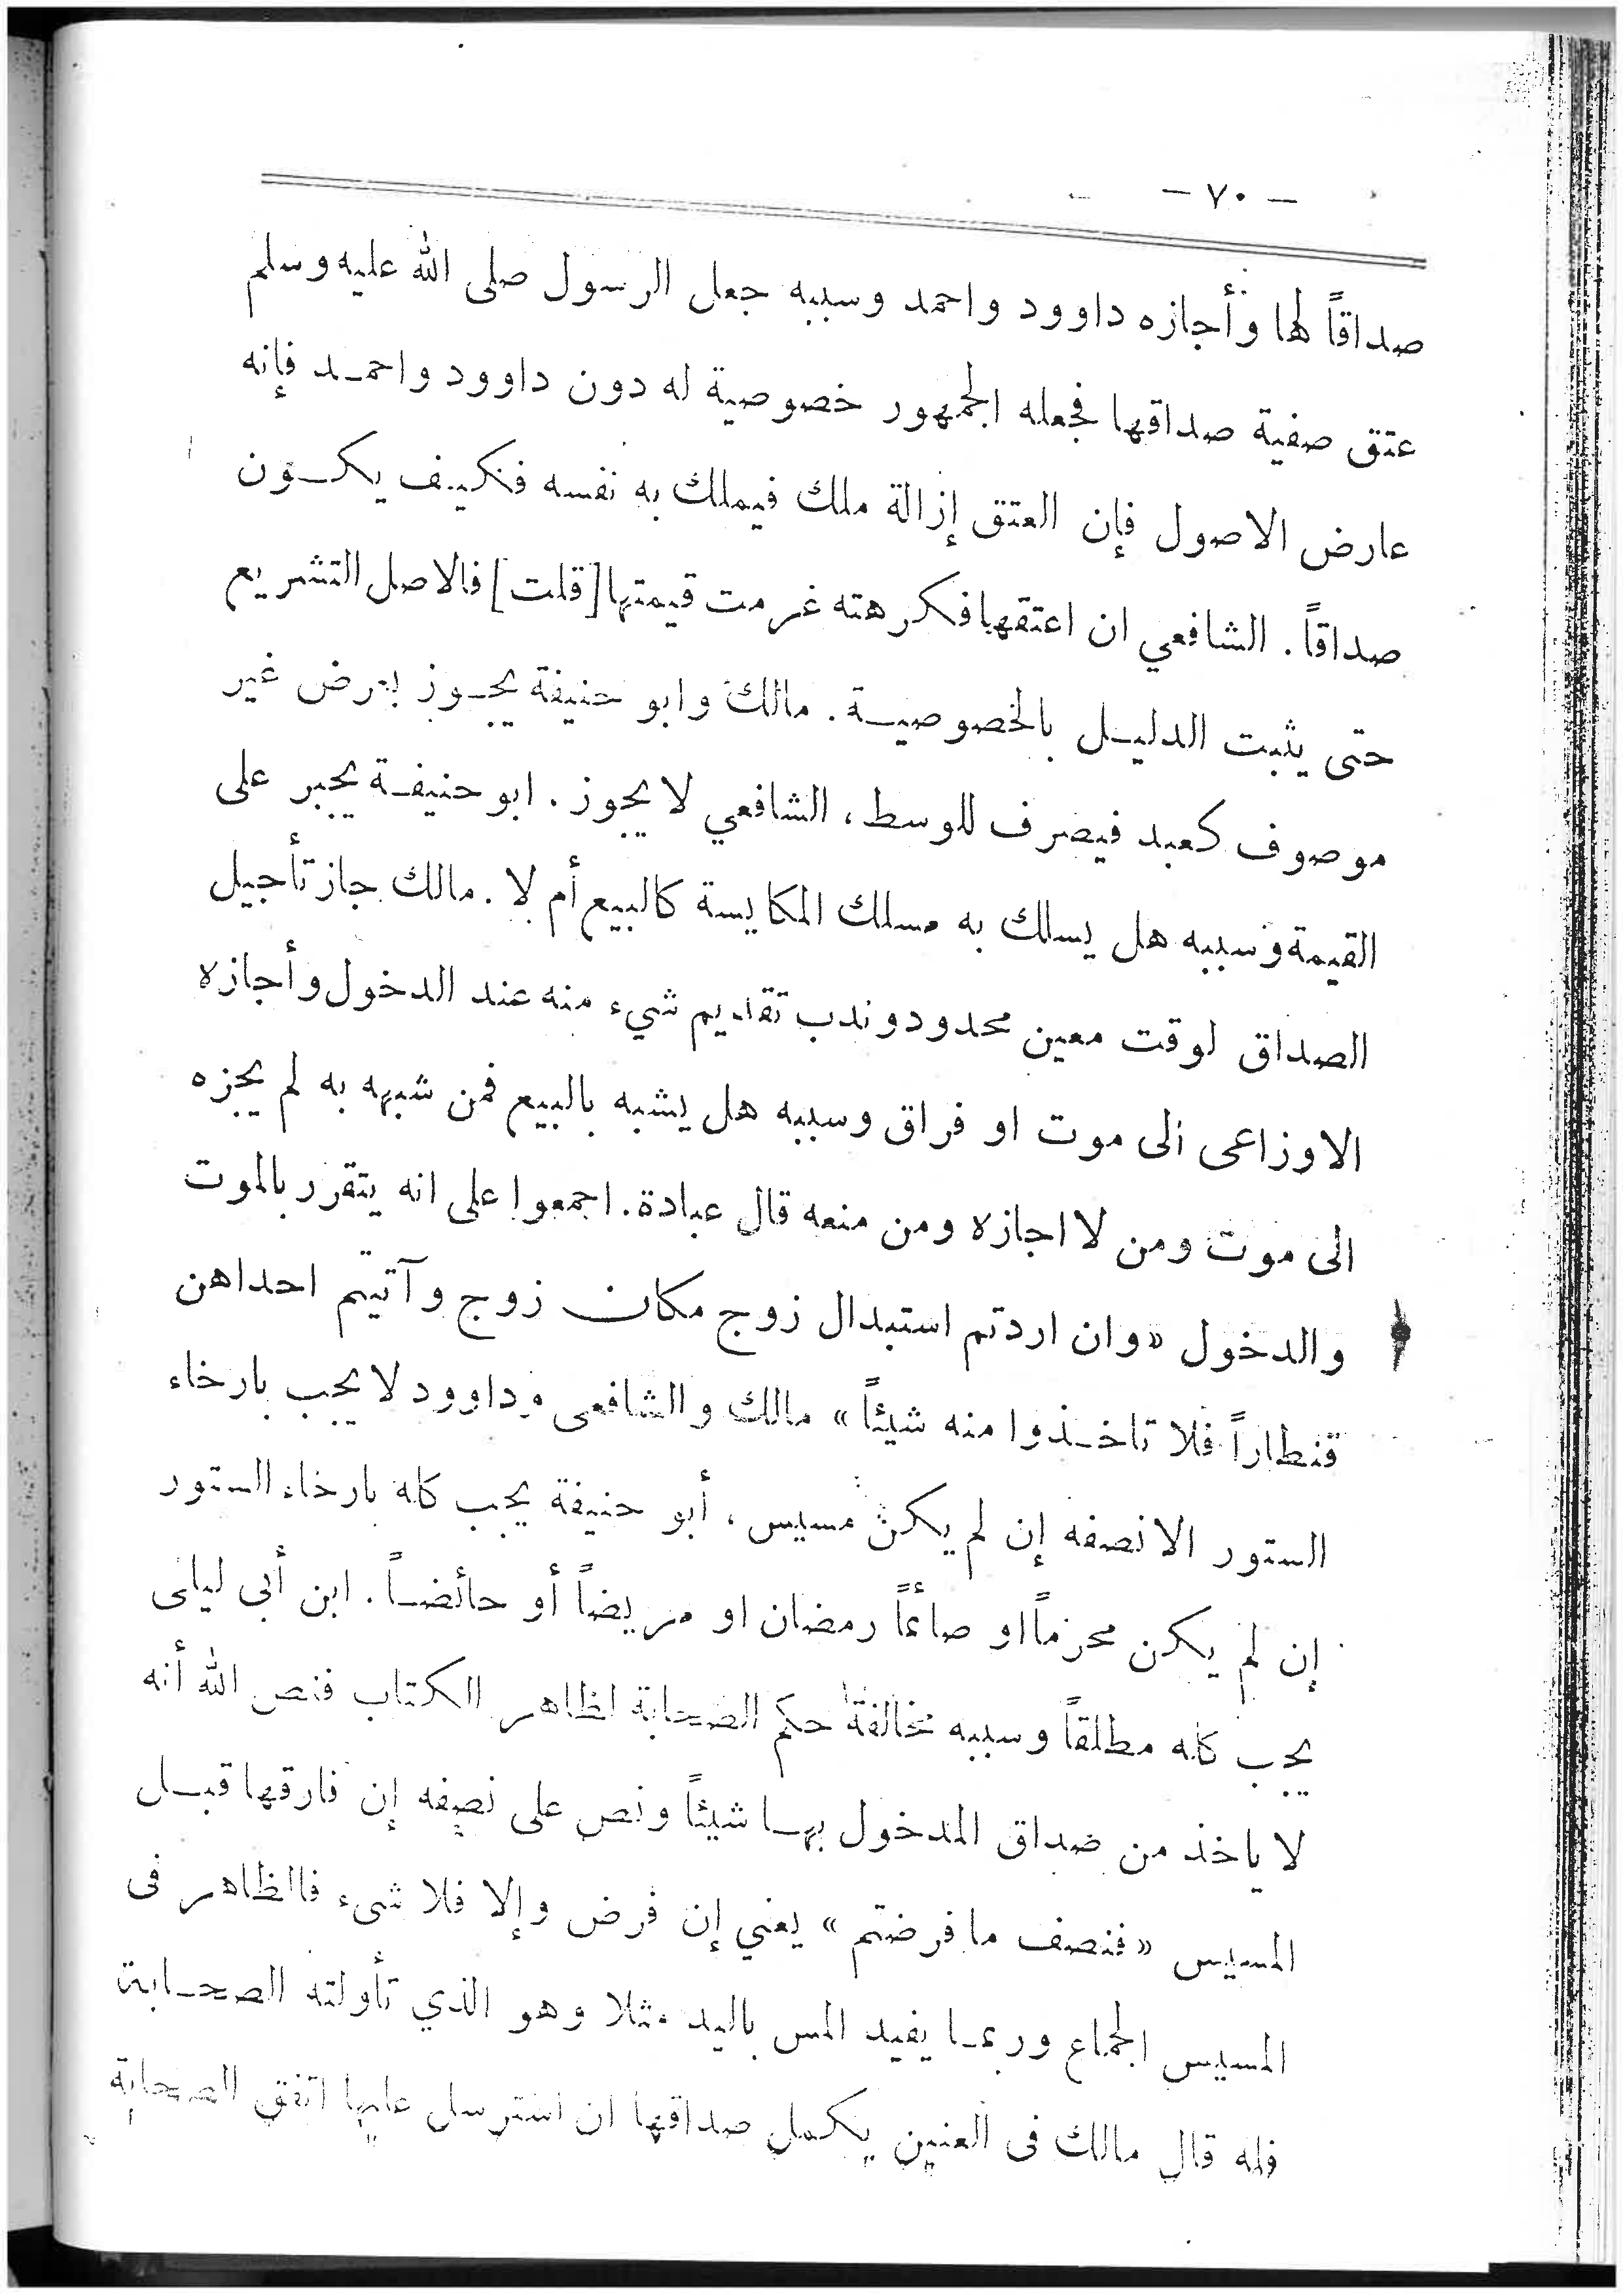 — ٧٠ —
صداقاً لها وأجازه داوود واحمد وسببه جعل الرسول صلى الله عليه وسلم
عتق صفية صداقها فجعله الجمهور خصوصية له دون داوود واحمد فإنه
عارض الاصول فإن العتق إزالة ملك فيملك به نفسه فكيف يكون
صداقاً . الشافعي ان اعتقها فكرهته غرمت قيمتها [قلت] فالاصل التشريع
حتى يثبت الدليل بالخصوصية . مالك وابو حنيفة يجوز بعرض غير
موصوف كعبد فيصرف للوسط ، الشافعي لا يجوز . ابو حنيفة يجبر على
القيمة وسببه هل يسلك به مسلك المكايسة كالبيع أم لا . مالك جاز تأجيل
الصداق لوقت معين محدود وندب تقديم شيء منه عند الدخول وأجازه
الاوزاعى الى موت او فراق وسببه هل يشبه بالبيع فمن شبهه به لم يجزه
الى موت ومن لا اجازه ومن منعه قال عبادة . اجمعوا على انه يتقرر بالموت
والدخول «وان اردتم استبدال زوج مكان زوج وآتيتم احداهن
قنطاراً فلا تاخذوا منه شيئاً» مالك والشافعى وداوود لا يجب بارخاء
الستور الا نصفه إن لم يكن مسيس ، أبو حنيفة يجب كله بارخاء الستور
إن لم يكن محرماً او صائماً رمضان او مريضاً أو حائضاً . ابن أبى ليلى
يجب كله مطلقاً وسببه مخالفة حكم الصحابة لظاهر الكتاب فنص الله أنه
لا ياخذ من صداق المدخول بها شيئاً ونص على نصفه إن فارقها قبل
المسيس «فنصف ما فرضتم» يعني إن فرض وإلا فلا شىء فالظاهر فى
المسيس الجماع وربما يفيد المس باليد مثلا وهو الذي تأولته الصحابة
فله قال مالك فى العنين يكمل صداقها ان استرسل عليها اتفق الصحابة